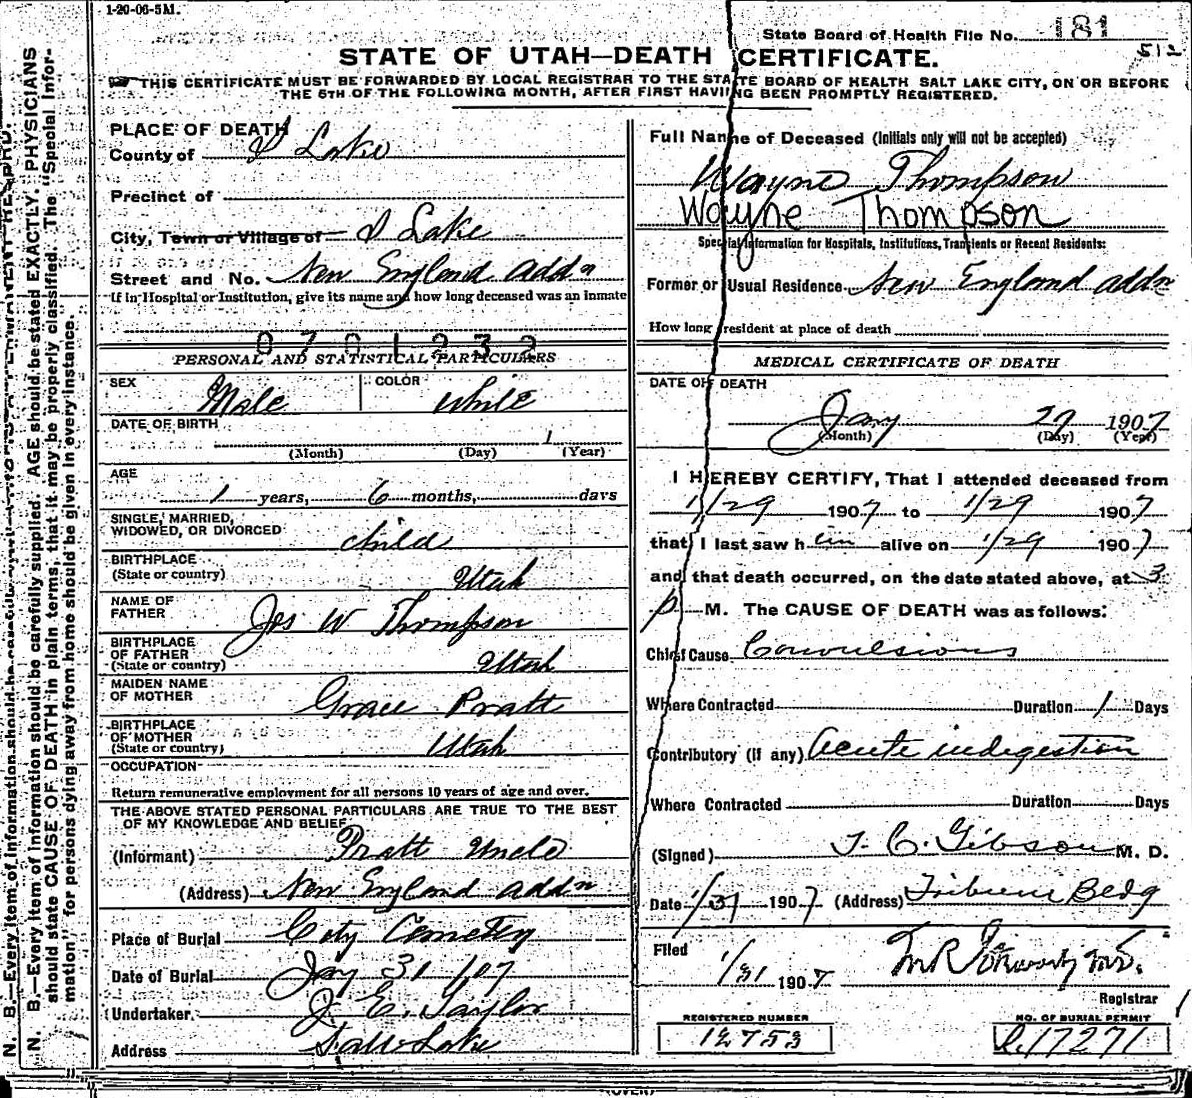 1-20-06-5M.
State Board of Health File No. 181
512
STATE OF UTAH—DEATH CERTIFICATE.
THIS CERTIFICATE MUST BE FORWARDED BY LOCAL REGISTRAR TO THE STATE BOARD OF HEALTH SALT LAKE CITY, ON OR BEFORE
THE 5TH OF THE FOLLOWING MONTH, AFTER FIRST HAVING BEEN PROMPTLY REGISTERED.
PLACE OF DEATH
County of S Lake
Precinct of
City, Town or Village of S Lake
Street and No. New England addn
If in Hospital or Institution, give its name and how long deceased was an inmate
0701232
PERSONAL AND STATISTICAL PARTICULARS
SEX Male COLOR White
DATE OF BIRTH 1
(Month) (Day) (Year)
AGE
1 years, 6 months, days
SINGLE, MARRIED,
WIDOWED, OR DIVORCED child
BIRTHPLACE
(State or country) Utah
NAME OF
FATHER Jos W Thompson
BIRTHPLACE
OF FATHER
(State or country) Utah
MAIDEN NAME
OF MOTHER Grace Pratt
BIRTHPLACE
OF MOTHER
(State or country) Utah
OCCUPATION
Return remunerative employment for all persons 10 years of age and over.
THE ABOVE STATED PERSONAL PARTICULARS ARE TRUE TO THE BEST
OF MY KNOWLEDGE AND BELIEF
(Informant) Pratt Uncle
(Address) New England addn
Place of Burial City Cemetery
Date of Burial Jany 31 /07
Undertaker. J. E. Taylor
Address Salt Lake
Full Name of Deceased (Initials only will not be accepted)
Wayne Thompson
Wayne Thompson
Special Information for Hospitals, Institutions, Transients or Recent Residents:
Former or Usual Residence New England addn
How long resident at place of death
MEDICAL CERTIFICATE OF DEATH
DATE OF DEATH
Jany 29 1907
(Month) (Day) (Year)
I HEREBY CERTIFY, That I attended deceased from
1/29 1907 to 1/29 1907
that I last saw him alive on 1/29 1907
and that death occurred, on the date stated above, at 3
p M. The CAUSE OF DEATH was as follows:
Chief Cause Convulsions
Where Contracted Duration 1 Days
Contributory (if any) Acute indigestion
Where Contracted Duration Days
(Signed) T. C. Gibson M. D.
Date 1/31 1907 (Address) Tribune Bldg
Filed 1/31 1907
Registrar
REGISTERED NUMBER
12753
NO. OF BURIAL PERMIT
C.17271
N. B.—Every item of information should be carefully supplied. AGE should be stated EXACTLY. PHYSICIANS
should state CAUSE OF DEATH in plain terms, that it may be properly classified. The "Special Infor-
mation" for persons dying away from home should be given in every instance.
(OVER)